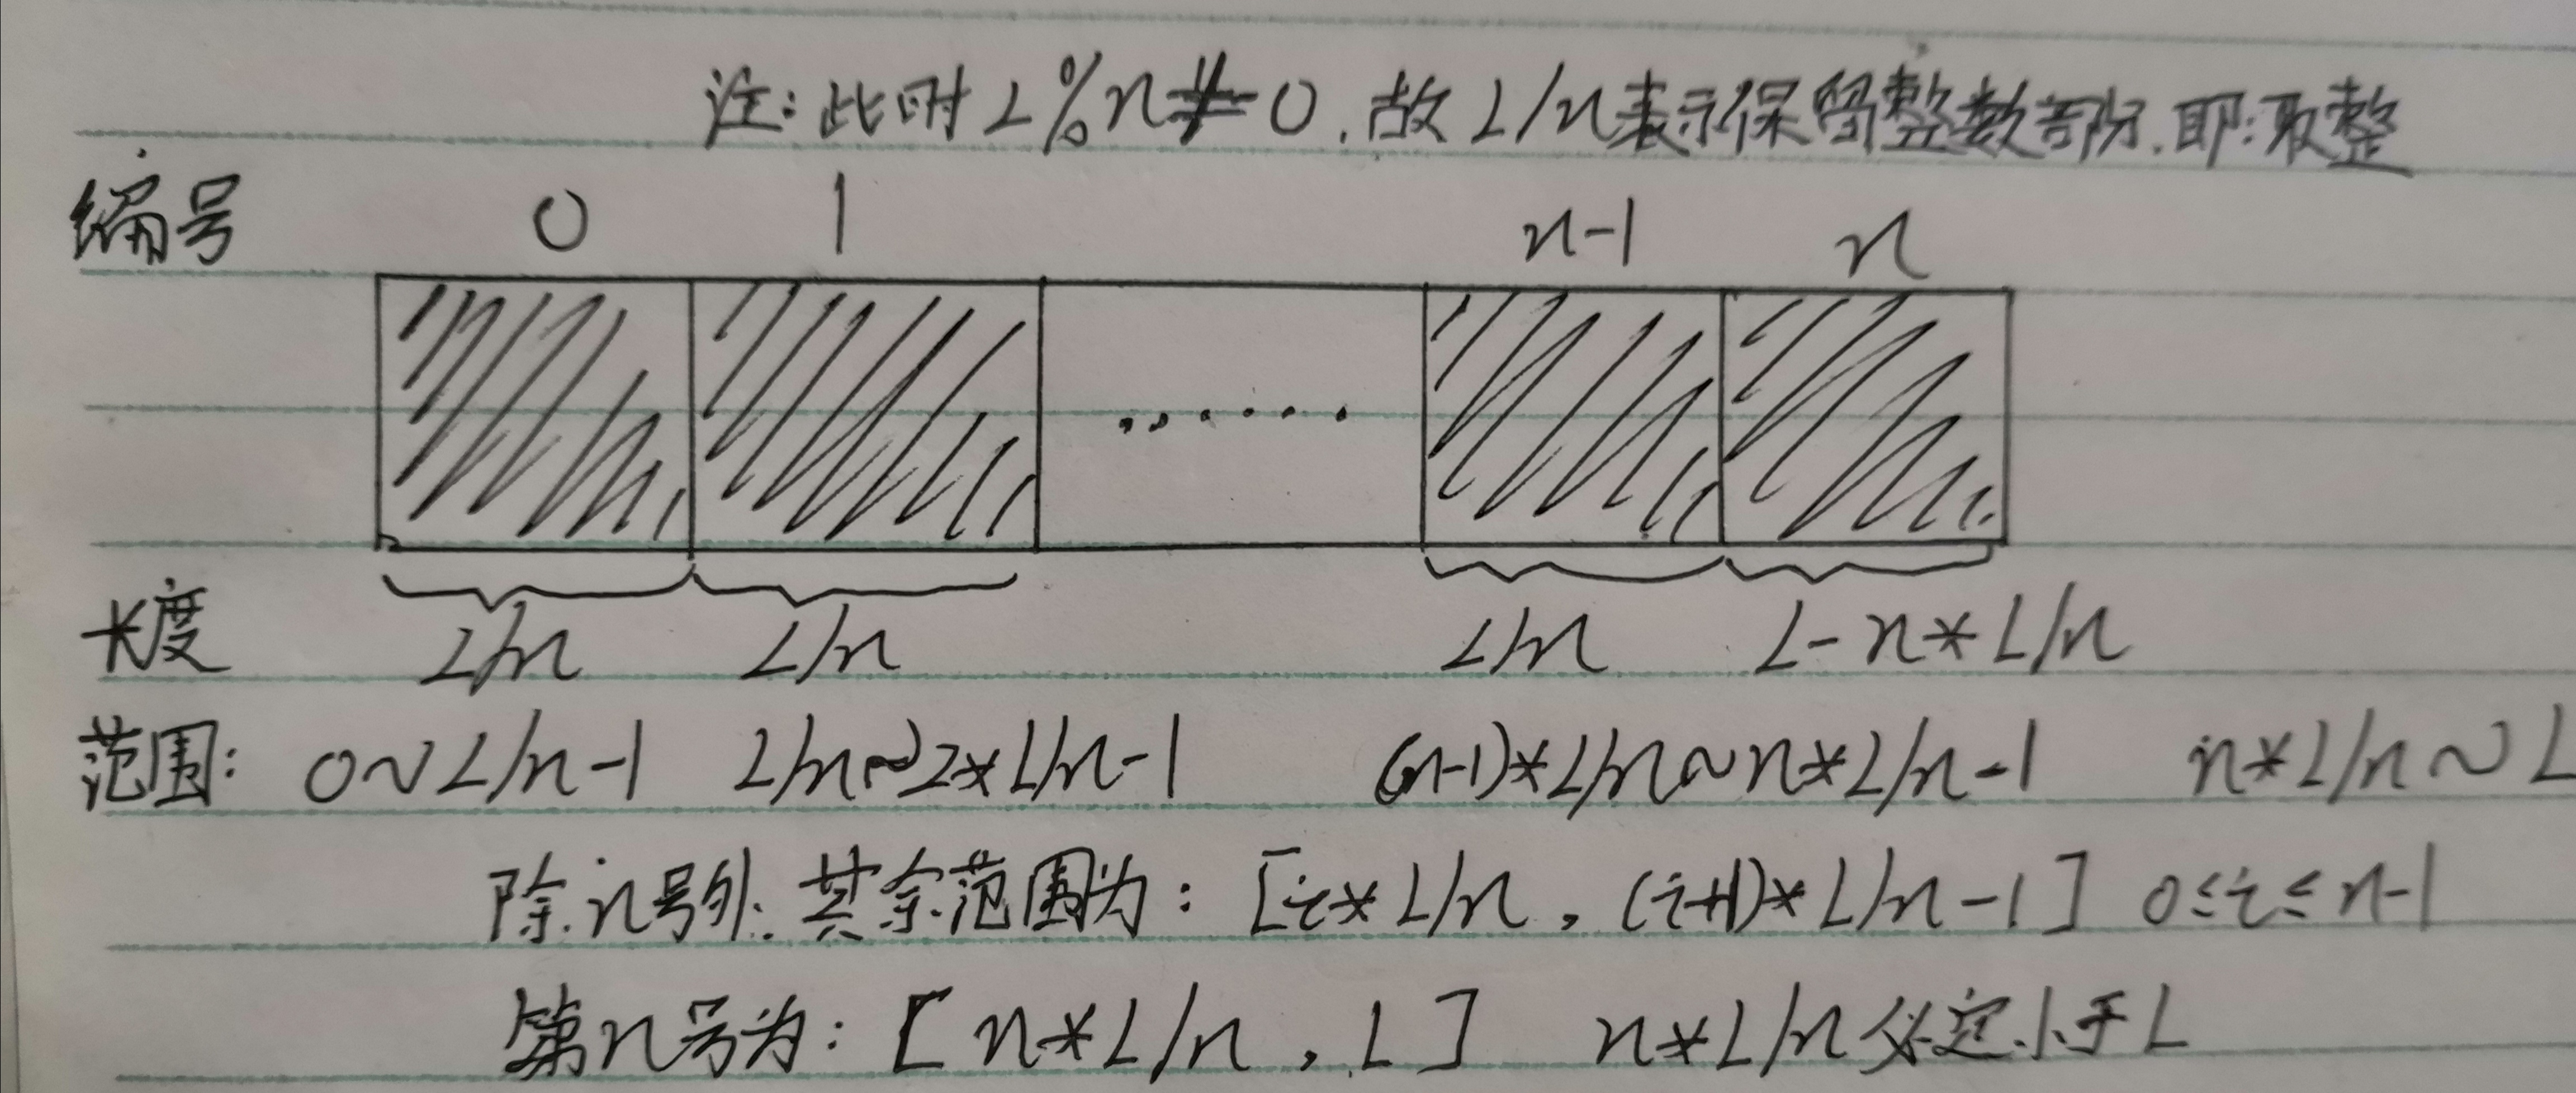 注:此时L%n≠0,故L/n表示保留整数部分.即:取整
编号 0 1 n-1 n
......
长度 L/n L/n L/n L-n*L/n
范围: 0~L/n-1 L/n~2*L/n-1 (n-1)*L/n~n*L/n-1 n*L/n~L
除n号外,其余范围为: [i*L/n, (i+1)*L/n-1] 0≤i≤n-1
第n号为: [n*L/n, L] n*L/n必定小于L